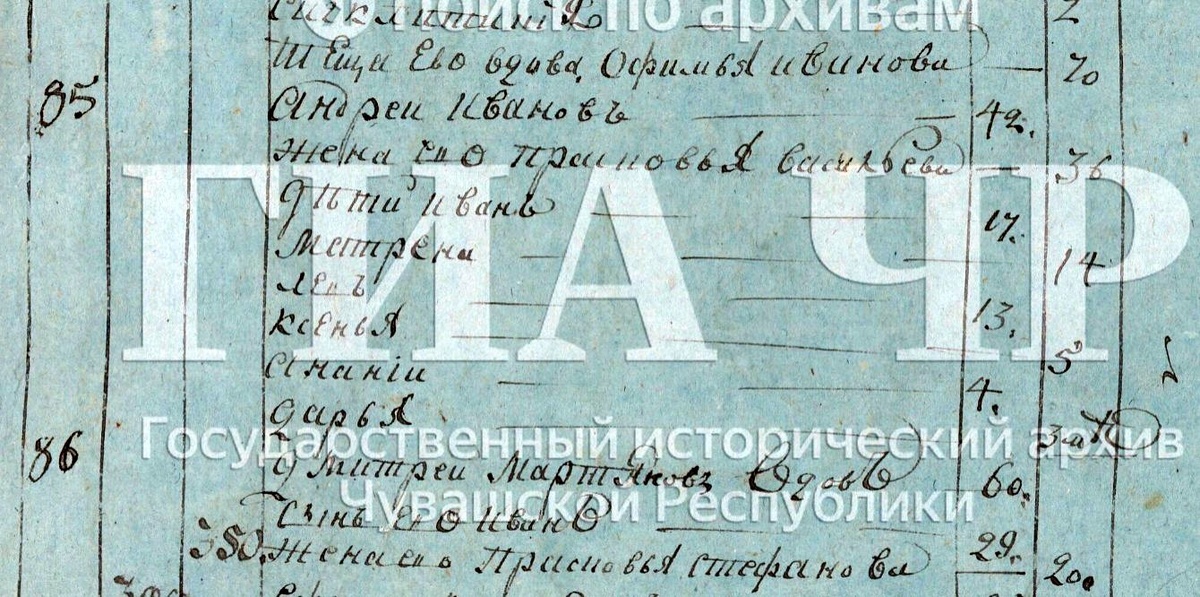 Сиклитинія 2
Теща Ево вдова Офимья иванова 70
85 Андреи Ивановъ 42.
жена ево Прасковья васильева 36
дѣти иванъ 17.
Матрена 14
левъ 13.
ксенья 5
Ананіи 4.
дарья
86 дмитреи Мартьяновъ вдовъ 60.
Сынъ ево иванъ 29.
Жена ево Прасковья стефанова 20.
Поиск по архивам
ГИА ЧР
Государственный исторический архив
Чувашской Республики